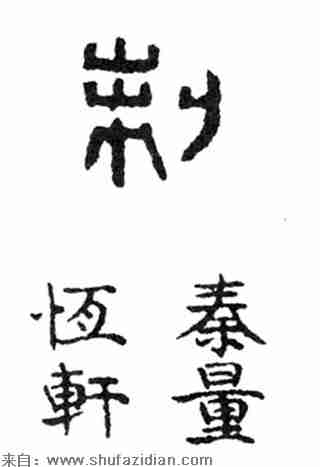 制
秦量
恆軒
来自：www.shufazidian.com